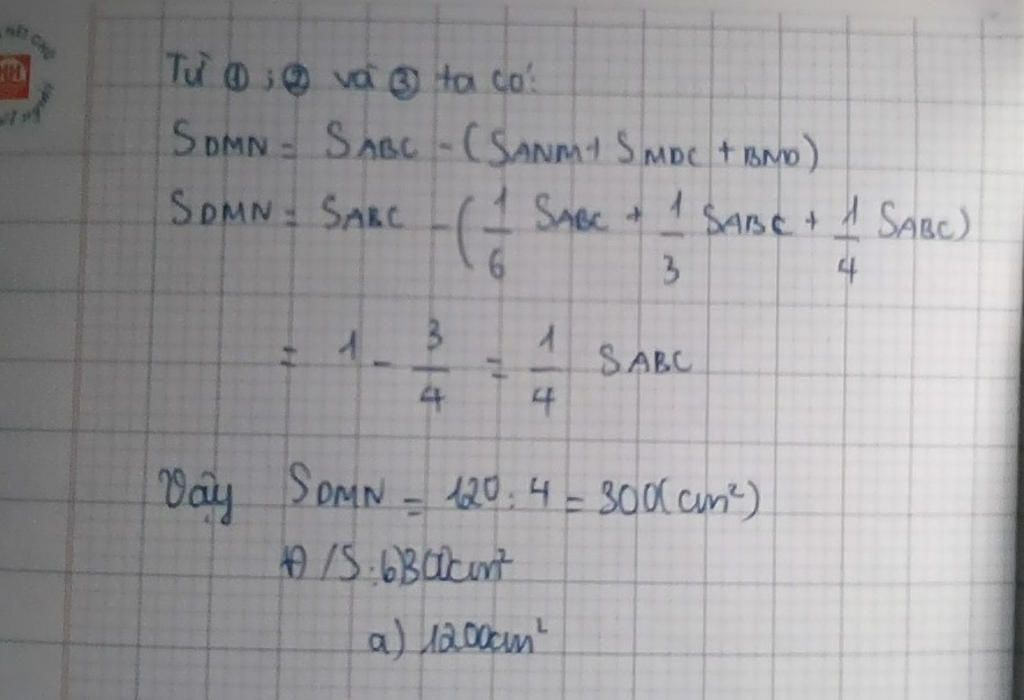 Từ ①; ② và ③ ta có:
SDMN = SABC - (SANM + SMDC + BND)
SDMN = SABC - (1/6 SABC + 1/3 SABC + 1/4 SABC)
= 1 - 3/4 = 1/4 SABC
Vậy SDMN = 120 : 4 = 300(cm²)
a) 1200cm²